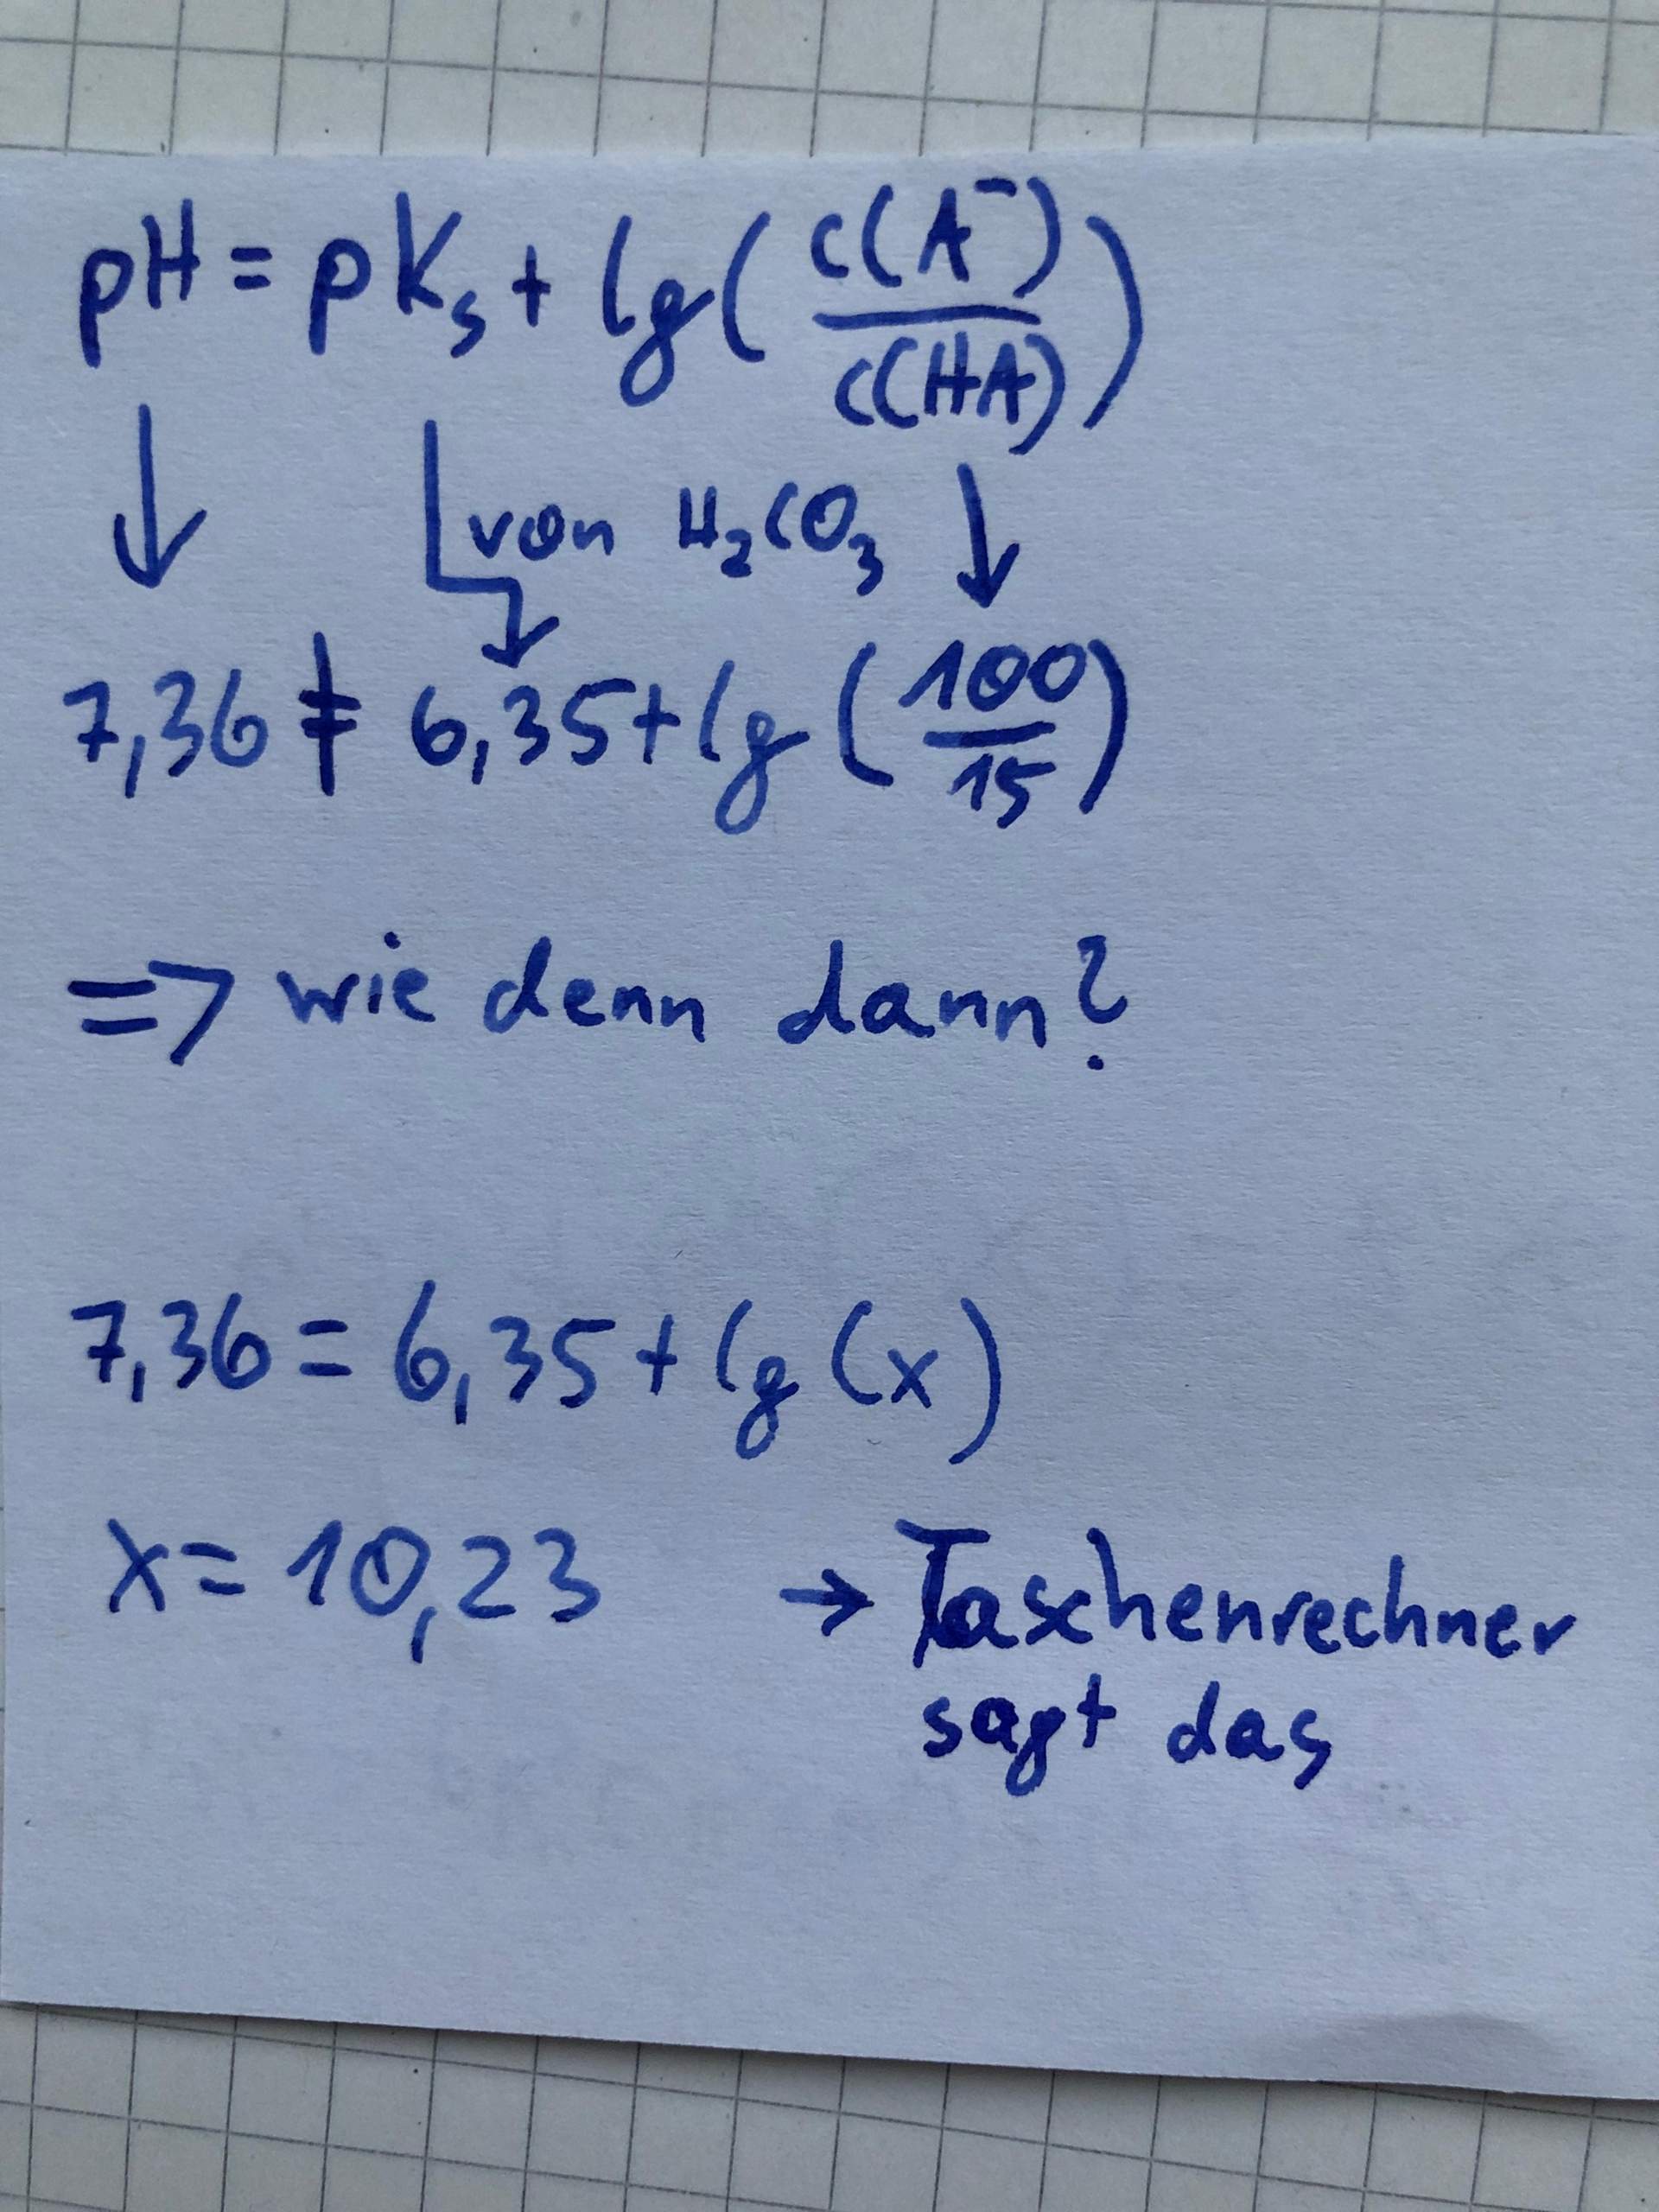 pH = pKₛ + lg( c(A⁻) / c(HA) )
von H₂CO₃
7,36 ≠ 6,35 + lg ( 100 / 15 )
=> wie denn dann?
7,36 = 6,35 + lg (x)
x = 10,23 → Taschenrechner
sagt das